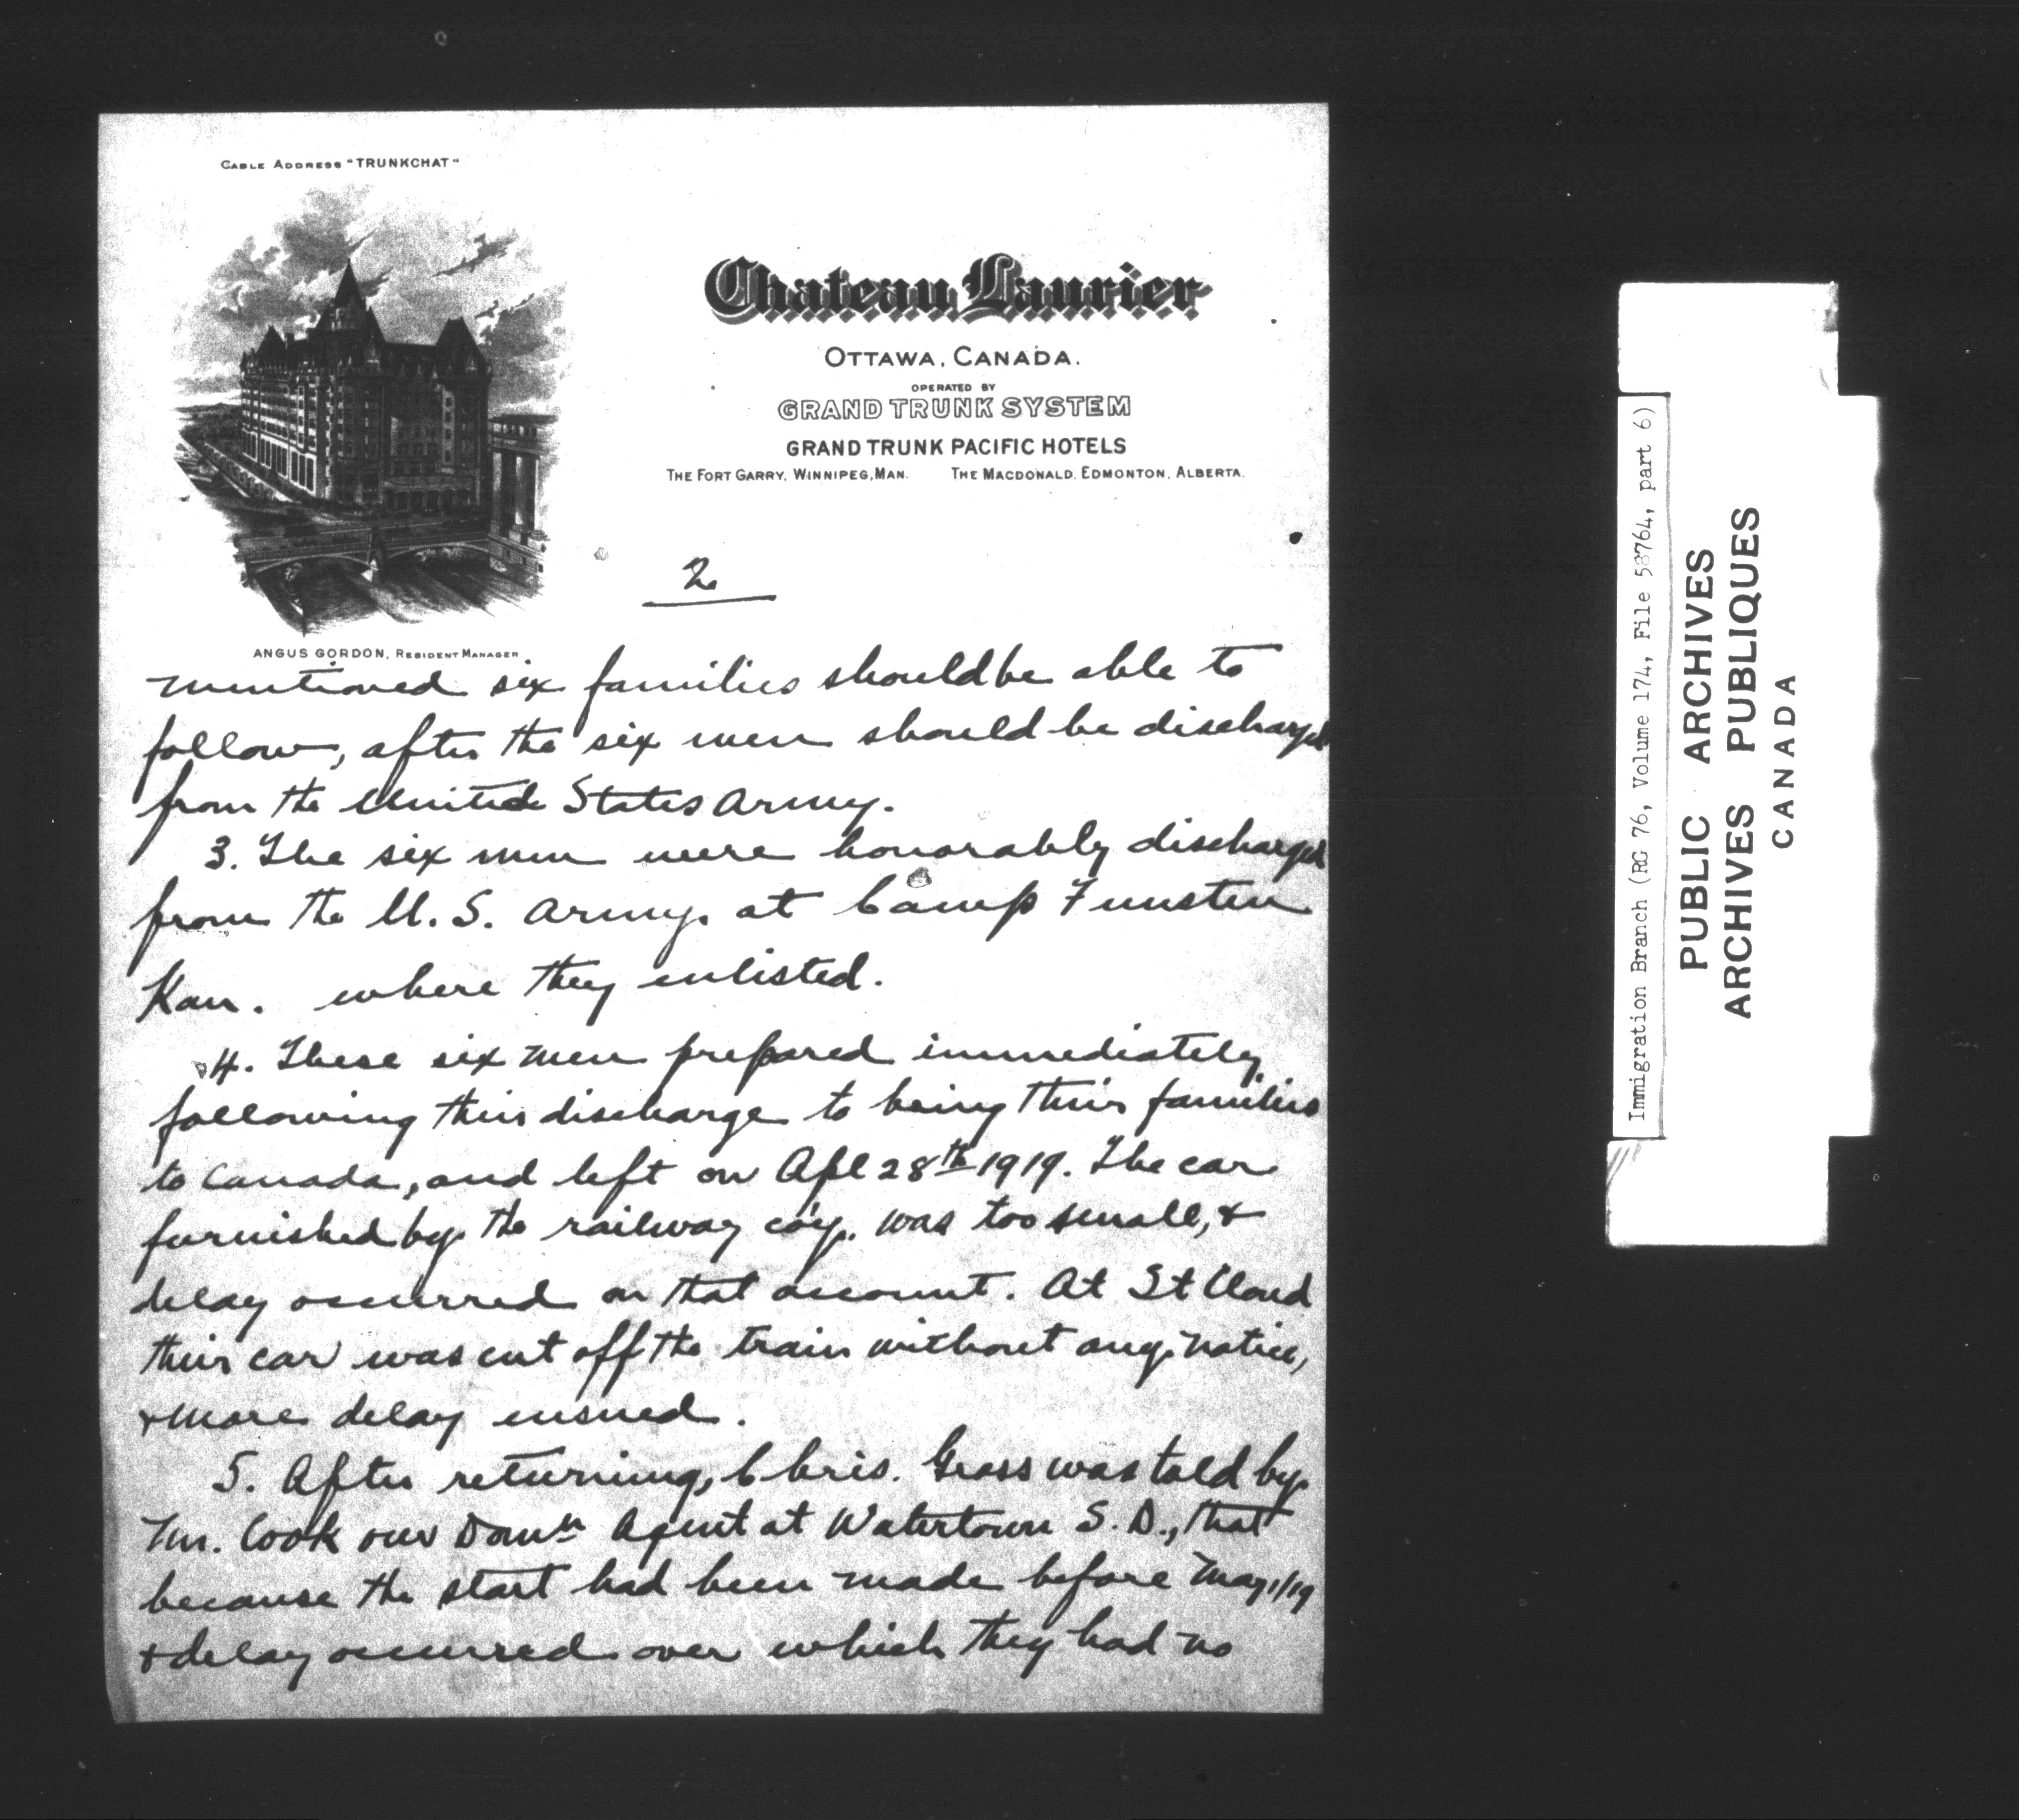 CABLE ADDRESS "TRUNKCHAT"
Chateau Laurier
OTTAWA, CANADA.
OPERATED BY
GRAND TRUNK SYSTEM
GRAND TRUNK PACIFIC HOTELS
THE FORT GARRY, WINNIPEG, MAN. THE MACDONALD, EDMONTON, ALBERTA.
ANGUS GORDON, RESIDENT MANAGER.
2
mentioned six families should be able to
follow, after the six men should be discharged
from the United States Army.
3. The six men were honorably discharged
from the U. S. Army. at Camp Funston
Kan. where they enlisted.
4. These six men prepared immediately
following their discharge to bring their families
to Canada, and left on Apl 28th 1919. The car
furnished by the railway co'y. was too small, &
delay occurred on that account. At St Cloud
their car was cut off the train without any notice,
& more delay ensued.
5. After returning, Chris. Gross was told by
Mr. Cook our Domn Agent at Watertown S. D., that
because the start had been made before May 1/19
& delay occurred over which they had no
Immigration Branch (RG 76, Volume 174, File 58764, part 6)
PUBLIC ARCHIVES
ARCHIVES PUBLIQUES
CANADA